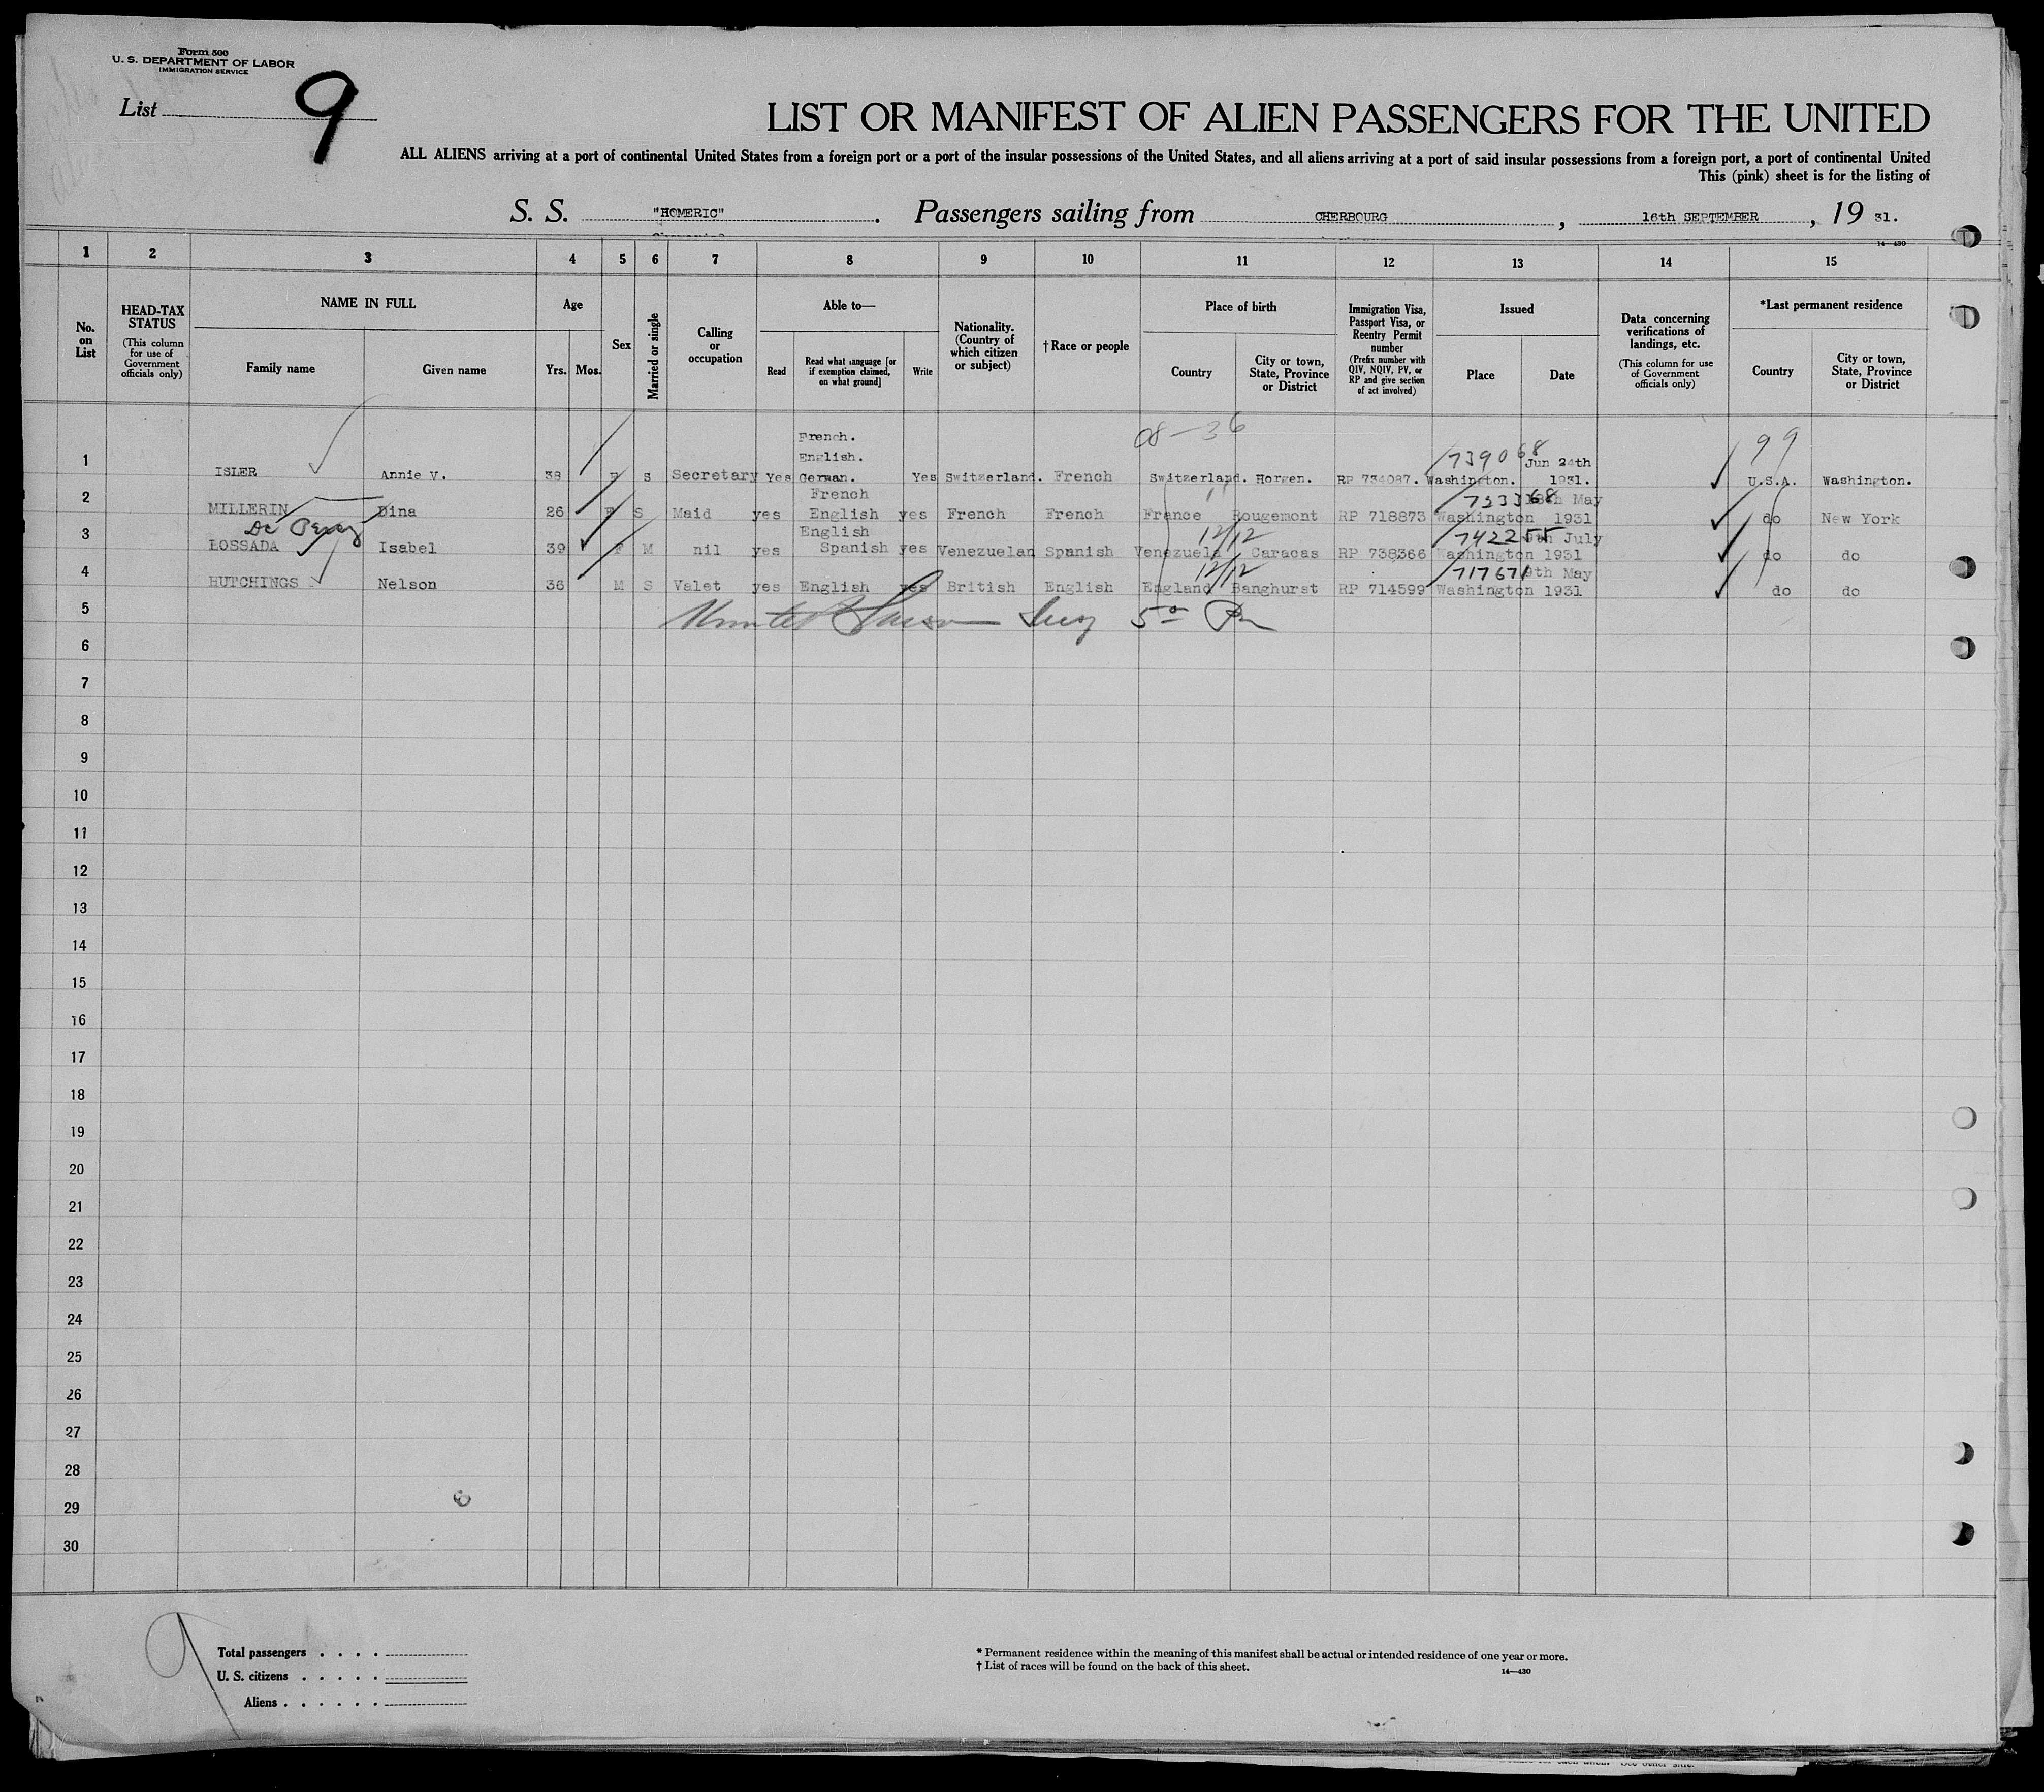 Form 500
U. S. DEPARTMENT OF LABOR
IMMIGRATION SERVICE
List 9
LIST OR MANIFEST OF ALIEN PASSENGERS FOR THE UNITED
ALL ALIENS arriving at a port of continental United States from a foreign port or a port of the insular possessions of the United States, and all aliens arriving at a port of said insular possessions from a foreign port, a port of continental United
This (pink) sheet is for the listing of
S. S. "HOMERIC". Passengers sailing from CHERBOURG, 16th SEPTEMBER, 19 31.
14—430
1 2 3 4 5 6 7 8 9 10 11 12 13 14 15
No. on List
HEAD-TAX STATUS
(This column for use of Government officials only)
NAME IN FULL
Family name
Given name
Age
Yrs. Mos.
Sex
Married or single
Calling or occupation
Able to—
Read
Read what language [or if exemption claimed, on what ground]
Write
Nationality. (Country of which citizen or subject)
† Race or people
Place of birth
Country
City or town, State, Province or District
Immigration Visa, Passport Visa, or Reentry Permit number
(Prefix number with QIV, NQIV, PV, or RP and give section of act involved)
Issued
Place
Date
Data concerning verifications of landings, etc.
(This column for use of Government officials only)
*Last permanent residence
Country
City or town, State, Province or District
08-36
99
739068
1 ISLER Annie V. 38 F S Secretary Yes French. English. German. Yes Switzerland. French Switzerland. Horgen. RP 734087. Washington. Jun 24th 1931. U.S.A. Washington.
733368
2 MILLERIN Dina 26 F S Maid yes French English yes French French France Rougemont RP 718873 Washington May 1931 do New York
De Perez
12/12
742255
3 LOSSADA Isabel 39 F M nil yes English Spanish yes Venezuelan Spanish Venezuela Caracas RP 738366 Washington July 1931 do do
12/12
717671
4 HUTCHINGS Nelson 36 M S Valet yes English yes British English England Banghurst RP 714599 Washington 9th May 1931 do do
5
6
7
8
9
10
11
12
13
14
15
16
17
18
19
20
21
22
23
24
25
26
27
28
29
30
Total passengers . . . .
U. S. citizens . . . . .
Aliens . . . . . .
* Permanent residence within the meaning of this manifest shall be actual or intended residence of one year or more.
† List of races will be found on the back of this sheet.
14—430